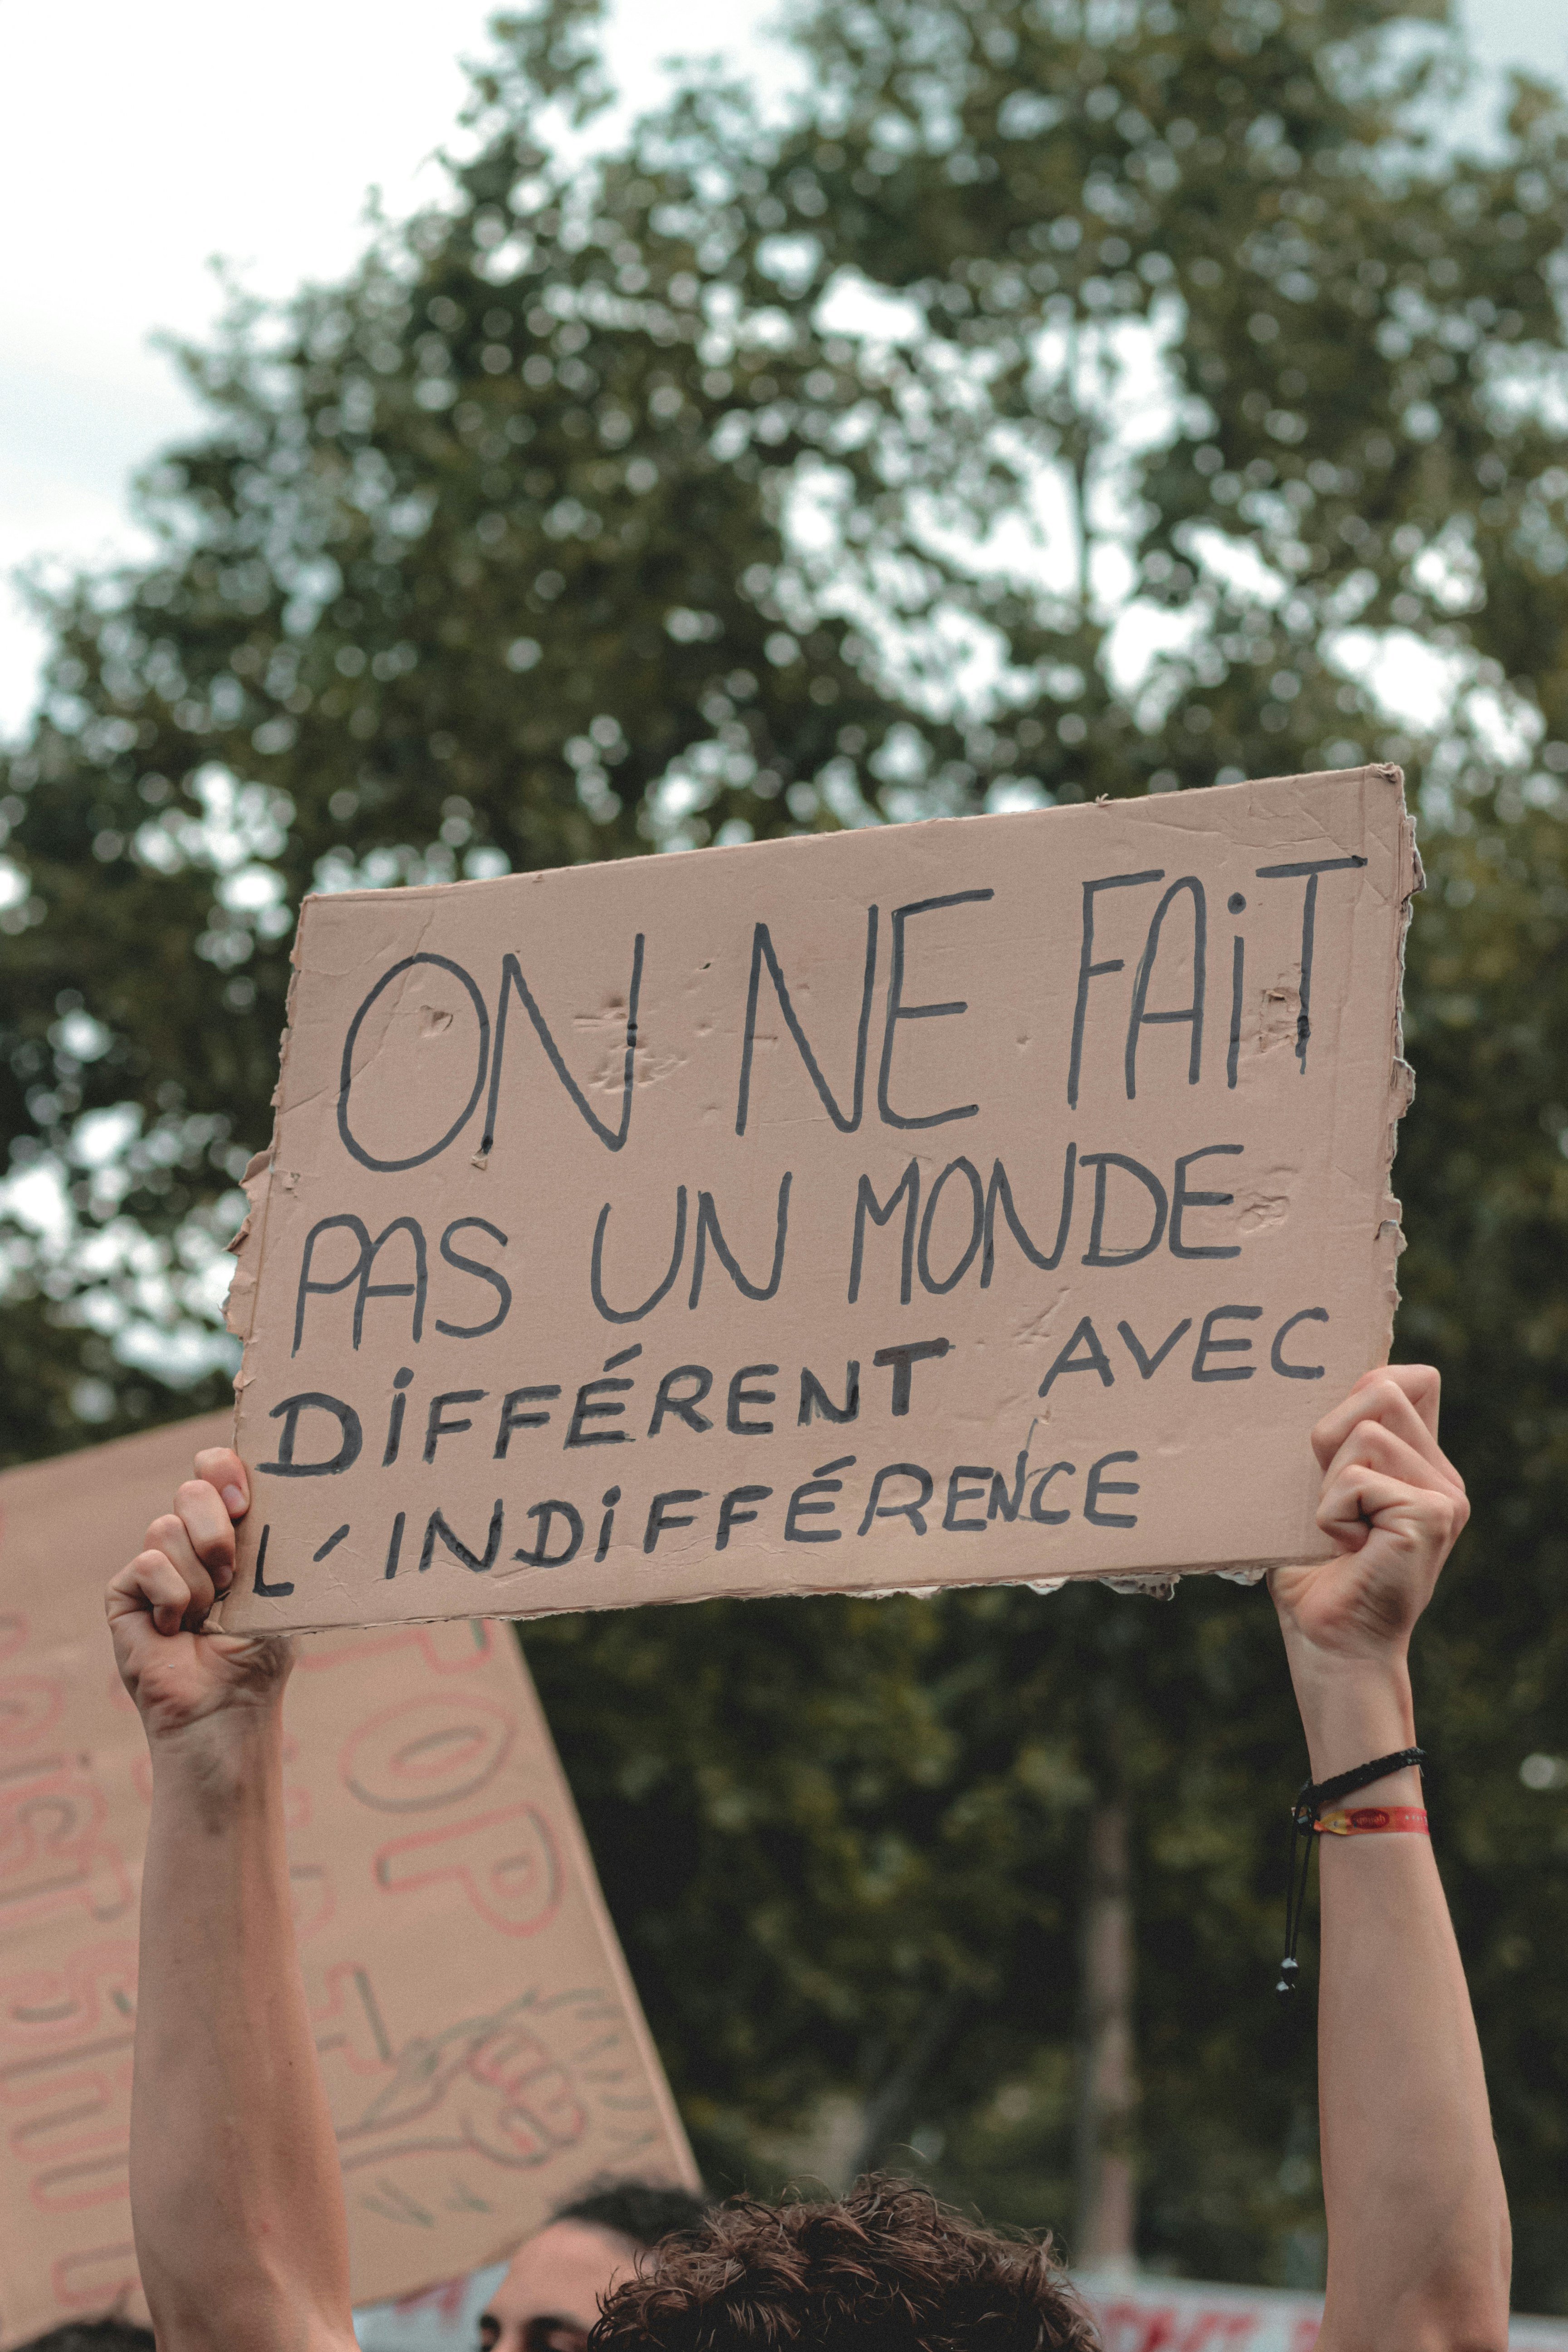 ON NE FAiT
PAS UN MONDE
DiFFÉRENT AVEC
L'INDiFFÉRENCE
TOP